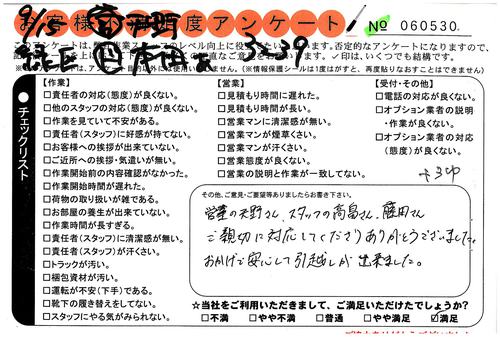 お客様満足度アンケート
№ 060530
9/15
3239
【作業】
□責任者の対応(態度)が良くない。
□他のスタッフの対応(態度)が良くない。
□作業を見ていて不安がある。
□責任者(スタッフ)に好感が持てない。
□お客様への挨拶が出来ていない。
□ご近所への挨拶・気遣いが無い。
□作業開始前の内容確認がなかった。
□作業開始時間が遅れた。
□荷物の取り扱いが雑である。
□お部屋の養生が出来ていない。
□作業時間が長すぎる。
□責任者(スタッフ)に清潔感が無い。
□責任者(スタッフ)が汗くさい。
□トラックが汚い。
□梱包資材が汚い。
□運転が不安(下手)である。
□靴下の履き替えをしてない。
□スタッフにやる気がみられない。
【営業】
□見積もり時間に遅れた。
□見積もり時間が長い。
□営業マンに清潔感が無い。
□営業マンが煙草くさい。
□営業マンが汗くさい。
□営業態度が良くない。
□営業の説明と作業が一致してない。
【受付・その他】
□電話の対応が良くない。
□オプション業者の説明
・作業が良くない。
□オプション業者の対応
(態度)が良くない。
チェックリスト
その他、ご意見・ご要望等ありましたらお書き下さい。
営業の天野さん、スタッフの高畠さん、藤田さん
ご親切に対応してくださりありがとうございました。
おかげで安心して引越しが出来ました。
☆当社をご利用いただきまして、ご満足いただけたでしょうか?
□不満 □やや不満 □普通 □やや満足 ☑満足